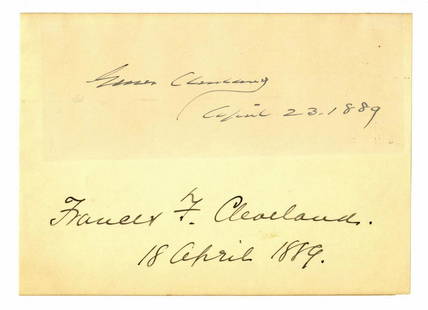 Grover Cleveland
April 23. 1889
Frances F. Cleveland.
18 April 1889.